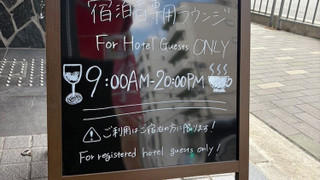 宿泊者専用ラウンジ
For Hotel Guests ONLY
9:00AM-20:00PM
ご利用はご宿泊の方に限ります!
For registered hotel guests only!